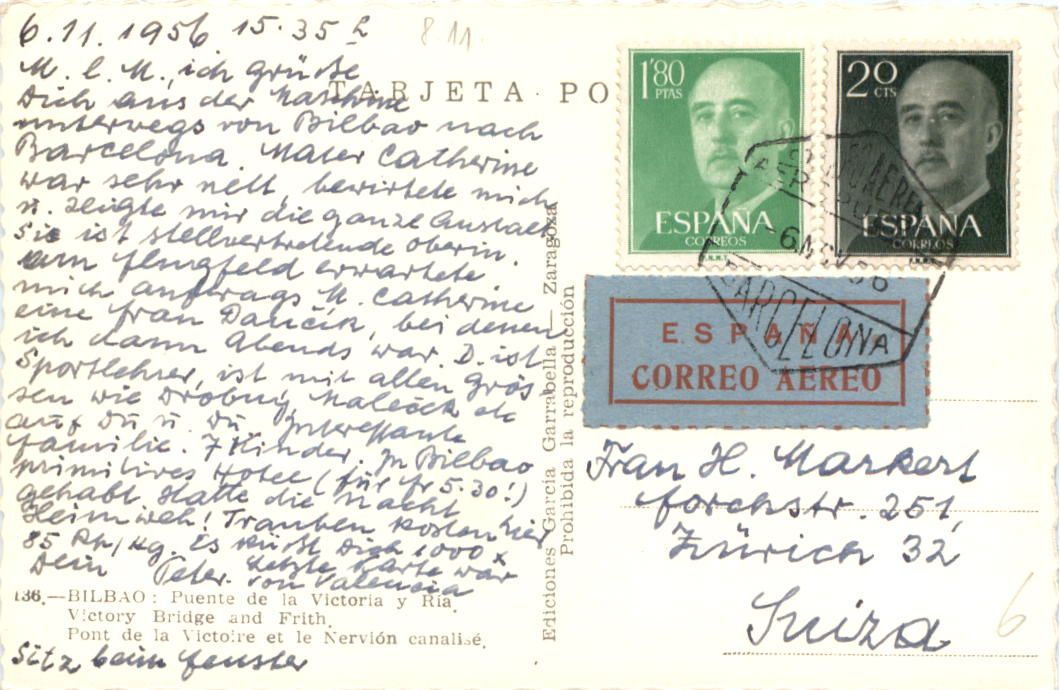 6.11.1956 15.35 h
8.11.
M. l. M. ich grüße
Dich aus der Maschine
unterwegs von Bilbao nach
Barcelona. Mater Catherine
war sehr nett, bewirtete mich
u. zeigte mir die ganze Anstalt
Sie ist stellvertretende oberin.
am flugfeld erwartete
mich auftrags M. Catherine
eine frau Daučik, bei denen
ich dann Abends war. D. ist
Sportlehrer, ist mit allen Grös
sen wie Drobny, Maleček etc
auf Du u. Du Interessante
familie. 7 Kinder. In Bilbao
primitives Hotel (für fr 5.30!)
gehabt. Hatte die Nacht
Heimweh! Trauben kosten hier
85 Rp/Kg. Es küßt Dich 1000 x
Dein Peter. Letzte Karte war
von Valencia
136.—BILBAO: Puente de la Victoria y Ría.
Victory Bridge and Frith.
Pont de la Victoire et le Nervión canalisé.
Sitz beim fenster
TARJETA PO
Ediciones García Garrabella — Zaragoza
Prohibida la reproducción
1'80
PTAS
ESPAÑA
CORREOS
F.N.M.T.
20
CTS
ESPAÑA
CORREOS
-6 NOV 56
BARCELONA
ESPAÑA
CORREO AEREO
Frau H. Markert
forchstr. 251,
Zürich 32
Suiza
6